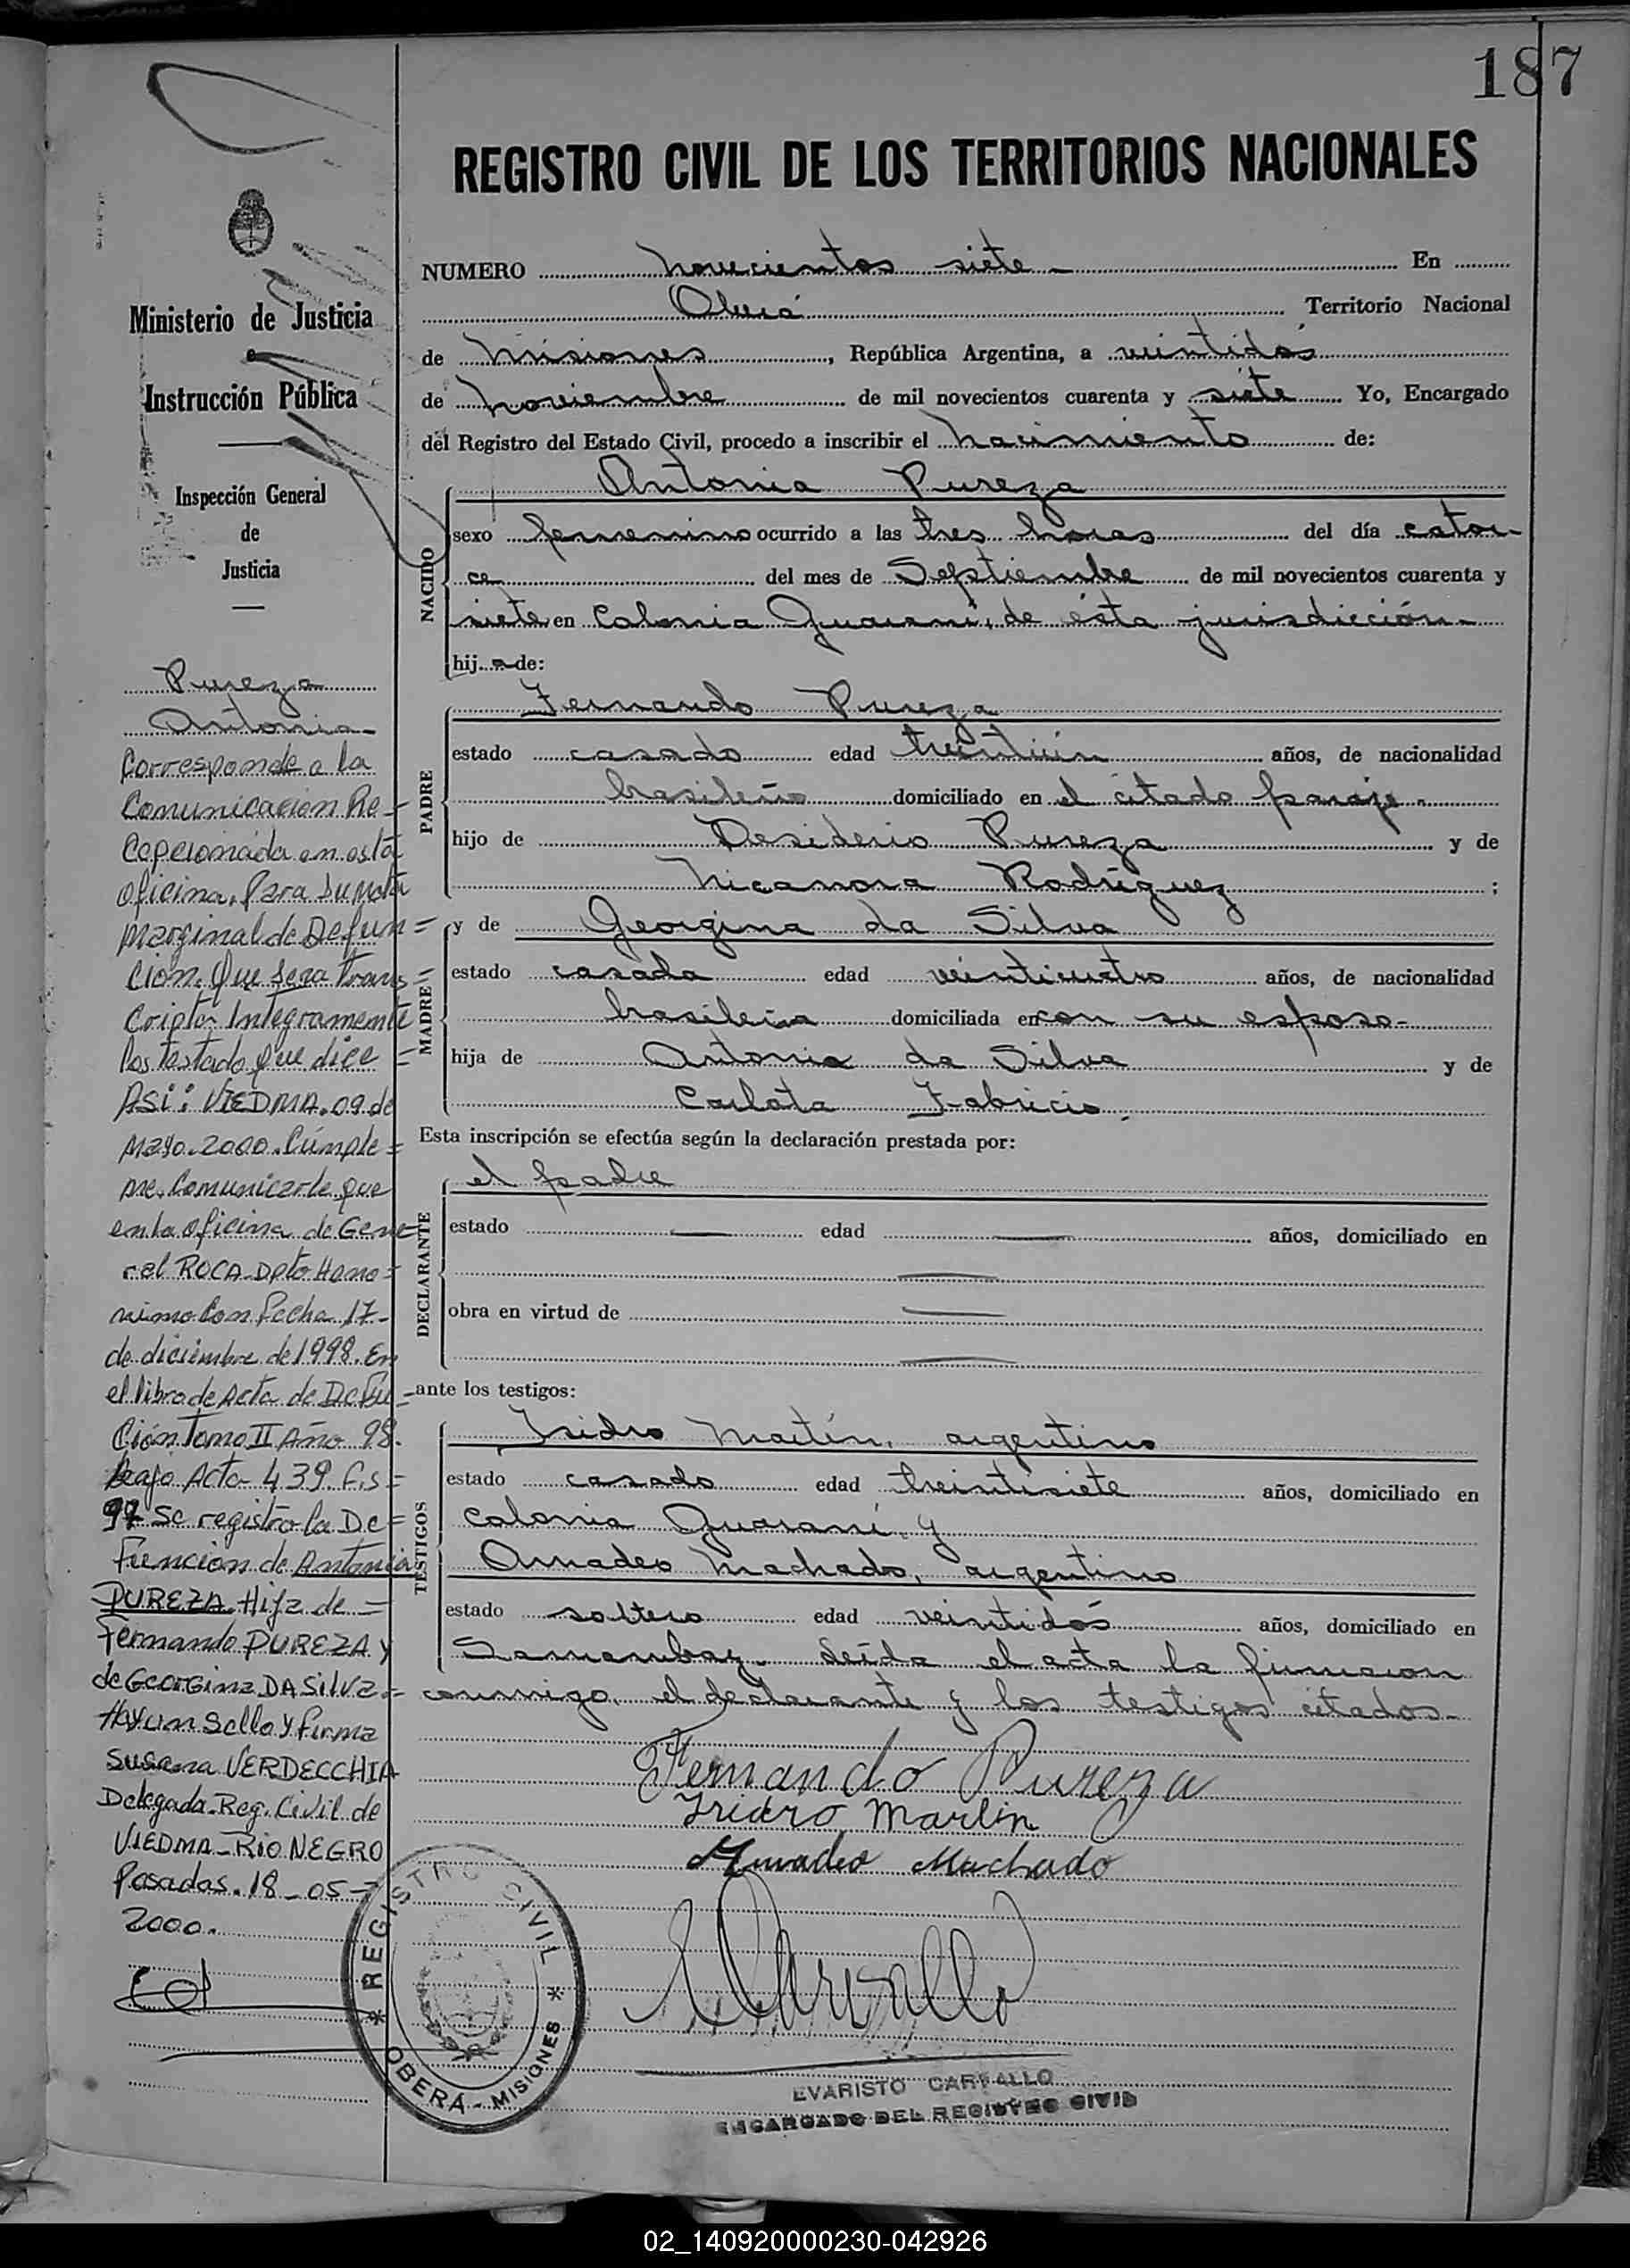 187
REGISTRO CIVIL DE LOS TERRITORIOS NACIONALES
Ministerio de Justicia
e
Instrucción Pública
Inspección General
de
Justicia
Pureza
Antonia
Corresponde a la
Comunicación Re=
Cepcionada en esta
oficina. Para su nota
Marginal de Defun=
ción. Que sera trans=
cripta Integramente
los testado que dice =
Asi: VIEDMA. 09 de
Mayo. 2000. Cúmple=
me. Comunicarle que
en la oficina de Gene=
ral ROCA Dpto Homo=
nimo Con fecha 17-
de diciembre de 1998. En
el libro de Acta de Defu=
ción Tomo II Año 98.
bajo Acta 439. f.s=
97 Se registro la De=
Funcion de Antonia
PUREZA Hija de =
Fernando PUREZA y
de Georgina DA SILVA.=
Hay un Sello y firma
Susana VERDECCHIA
Delegada Reg. Civil de
VIEDMA - RIO NEGRO
Posadas. 18-05-
2000.
NUMERO novecientos siete - En
Oberá Territorio Nacional
de Misiones, República Argentina, a veintidós
de noviembre de mil novecientos cuarenta y siete Yo, Encargado
del Registro del Estado Civil, procedo a inscribir el nacimiento de:
NACIDO
Antonia Pureza
sexo femenino ocurrido a las tres horas del día cator-
ce del mes de Septiembre de mil novecientos cuarenta y
siete en Colonia Guaraní, de ésta jurisdicción.-
hij a de:
PADRE
Fernando Pureza
estado casado edad treintiún años, de nacionalidad
brasileño domiciliado en el citado paraje.-
hijo de Desiderio Pureza y de
Nicanora Rodríguez ;
MADRE
y de Georgina da Silva
estado casada edad veinticuatro años, de nacionalidad
brasileña domiciliada en con su esposo-
hija de Antonio da Silva y de
Carlota Fabricio.
Esta inscripción se efectúa según la declaración prestada por:
DECLARANTE
el padre
estado — edad — años, domiciliado en
—
obra en virtud de —
—
ante los testigos:
TESTIGOS
Isidro Martín, argentino
estado casado edad treintisiete años, domiciliado en
Colonia Guaraní y
Amadeo Machado, argentino
estado soltero edad veintidós años, domiciliado en
Samambay. Leída el acta la firmaron
conmigo, el declarante y los testigos citados.-
Fernando Pureza
Isidro Martin
Amadeo Machado
ECarvallo
* REGISTRO CIVIL *
OBERÁ - MISIONES
EVARISTO CARVALLO
ENCARGADO DEL REGISTRO CIVIL
02_140920000230-042926